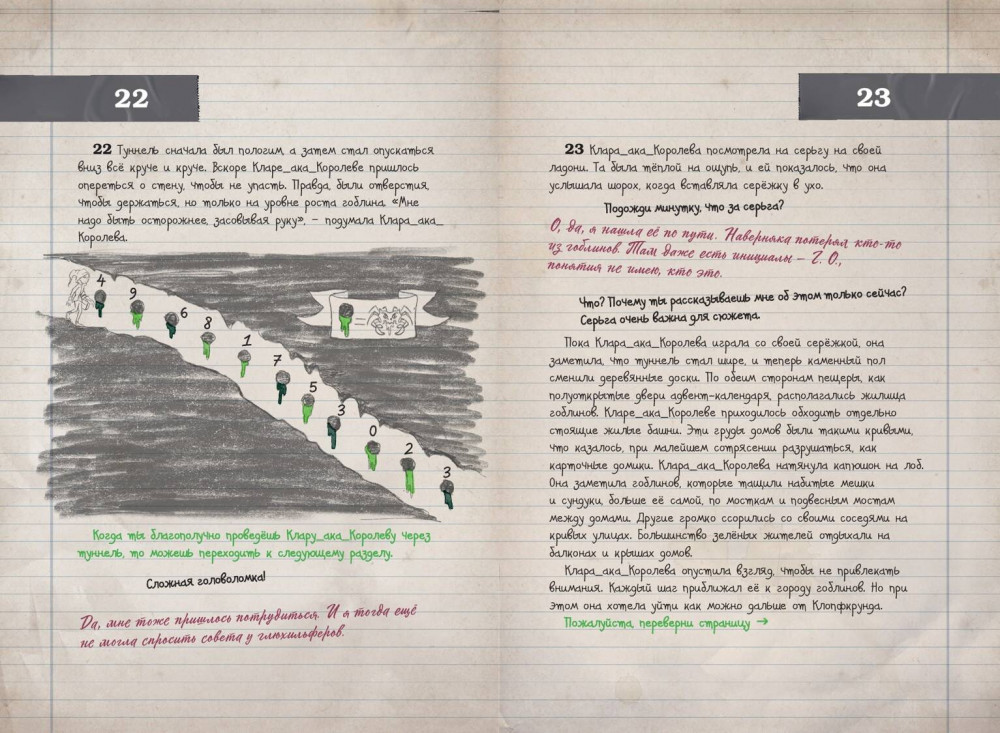 22
22 Туннель сначала был пологим, а затем стал опускаться
вниз всё круче и круче. Вскоре Кларе_ака_Королеве пришлось
опереться о стену, чтобы не упасть. Правда, были отверстия,
чтобы держаться, но только на уровне роста гоблина. «Мне
надо быть осторожнее, засовывая руку», – подумала Клара_ака_
Королева.
4
9
6
8
1
7
5
3
0
2
3
Когда ты благополучно проведёшь Клару_ака_Королеву через
туннель, то можешь переходить к следующему разделу.
Сложная головоломка!
Да, мне тоже пришлось потрудиться. И я тогда ещё
не могла спросить совета у глюхильферов.
23
23 Клара_ака_Королева посмотрела на серьгу на своей
ладони. Та была тёплой на ощупь, и ей показалось, что она
услышала шорох, когда вставляла серёжку в ухо.
Подожди минутку, что за серьга?
О, да, я нашла её по пути. Наверняка потерял кто-то
из гоблинов. Там даже есть инициалы – Г. О.,
понятия не имею, кто это.
Что? Почему ты рассказываешь мне об этом только сейчас?
Серьга очень важна для сюжета.
Пока Клара_ака_Королева играла со своей серёжкой, она
заметила, что туннель стал шире, и теперь каменный пол
сменили деревянные доски. По обеим сторонам пещеры, как
полуоткрытые двери адвент-календаря, располагались жилища
гоблинов. Кларе_ака_Королеве приходилось обходить отдельно
стоящие жилые башни. Эти груды домов были такими кривыми,
что казалось, при малейшем сотрясении разрушаться, как
карточные домики. Клара_ака_Королева натянула капюшон на лоб.
Она заметила гоблинов, которые тащили набитые мешки
и сундуки больше её самой, по мосткам и подвесным мостам
между домами. Другие громко ссорились со своими соседями на
кривых улицах. Большинство зелёных жителей отдыхали на
балконах и крышах домов.
Клара_ака_Королева опустила взгляд, чтобы не привлекать
внимания. Каждый шаг приближал её к городу гоблинов. Но при
этом она хотела уйти как можно дальше от Клопфкрунда.
Пожалуйста, переверни страницу →